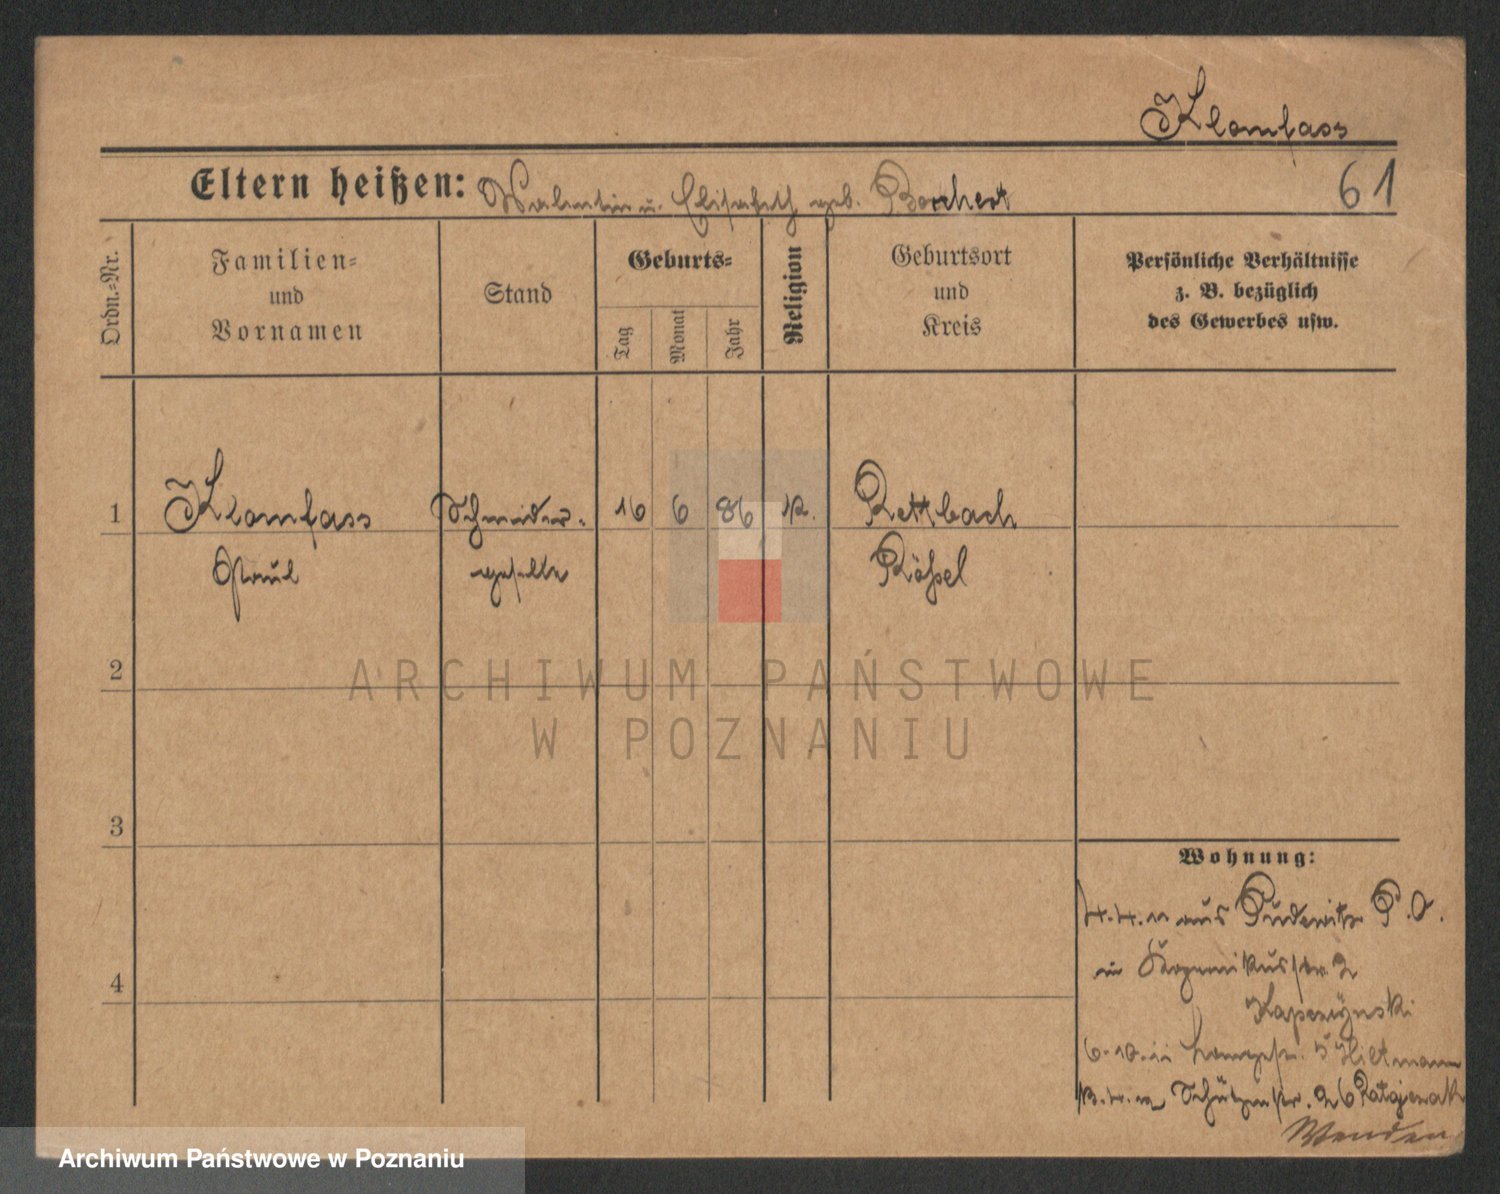 Klomfass
Eltern heißen: Valentin u. Elisabeth geb. Borchert
61
Ordn.-Nr.
Familien-
und
Vornamen
Stand
Geburts-
Tag
Monat
Jahr
Religion
Geburtsort
und
Kreis
Persönliche Verhältnisse
z. B. bezüglich
des Gewerbes usw.
1 Klomfass Schneider- 16 6 86 K. Rettbach
Paul geselle Rößel
2
3
4
Wohnung:
aus Pudewitz P.O.
in
6.10.11 5 Hiltmann
Schützenstr. 26 Ratajczak
ARCHIWUM PAŃSTWOWE
W POZNANIU
Archiwum Państwowe w Poznaniu